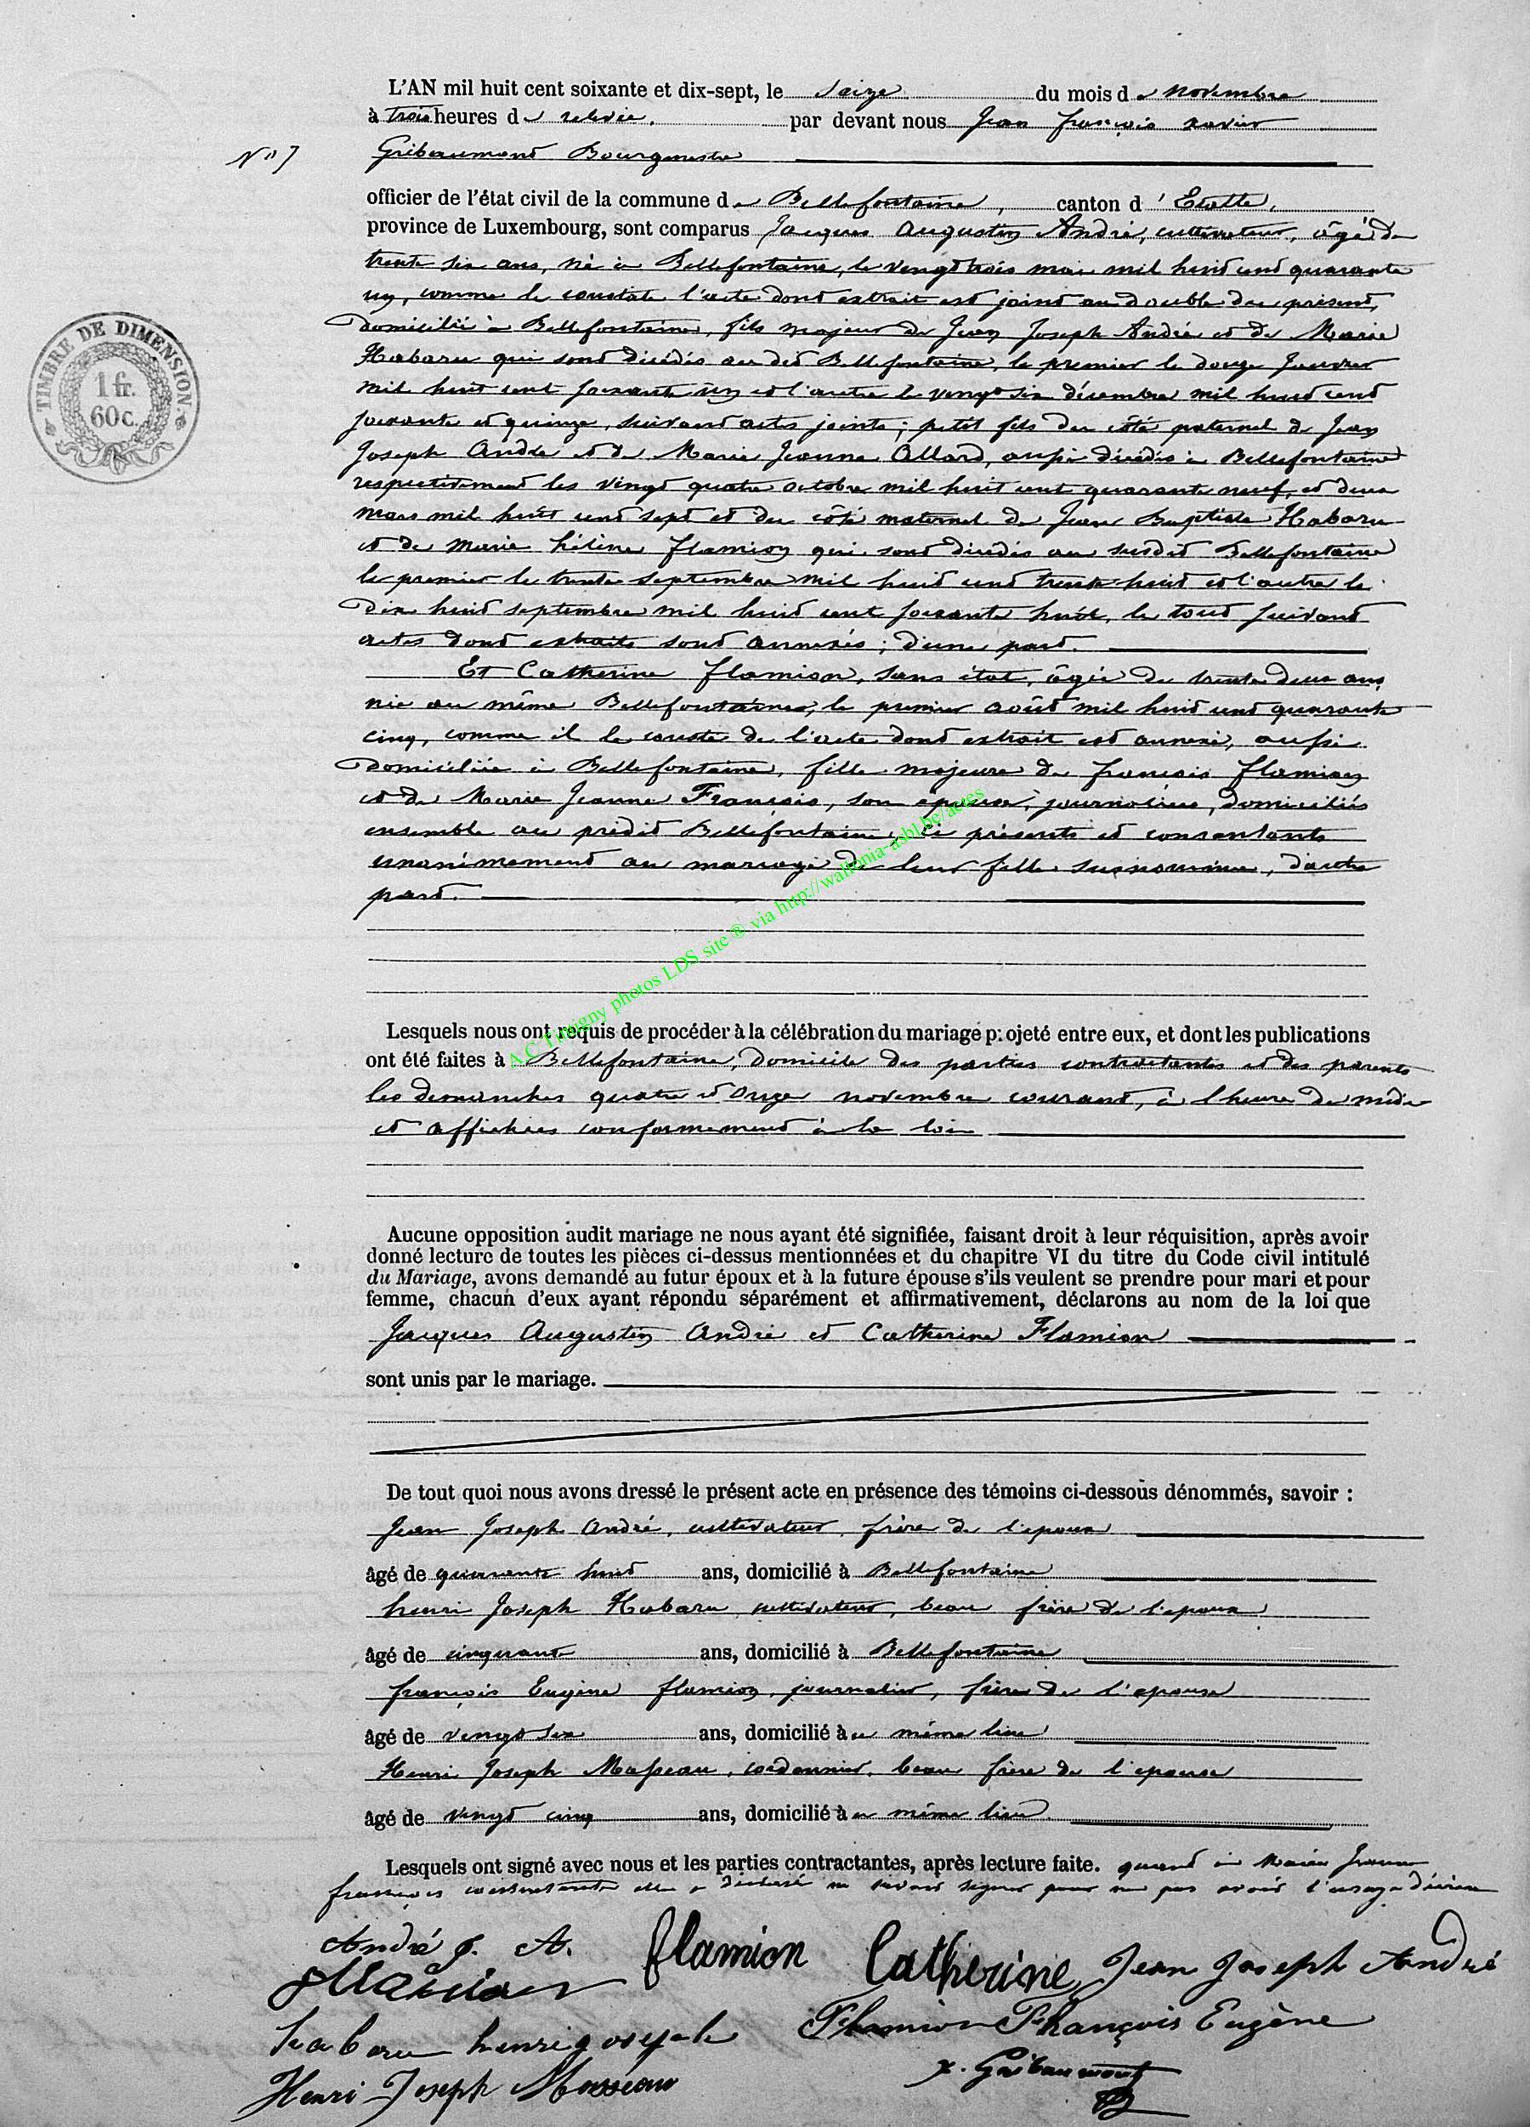 L'AN mil huit cent soixante et dix-sept, le Seize du mois de Novembre
à trois heures de relevée. par devant nous Jean françois xavier
N° 7
Gribaumont Bourgmestre
officier de l'état civil de la commune de Bellefontaine, canton d'Etalle,
province de Luxembourg, sont comparus Jacques Augustin André, cultivateur, âgé de
trente six ans, né à Bellefontaine, le vingt trois mai mil huit cent quarante
un, comme le constate l'acte dont extrait est joint au double du présent,
domicilié à Bellefontaine, fils majeur de Jean Joseph André et de Marie
Habaru qui sont décédés au dit Bellefontaine, le premier le douze Janvier
mil huit cent soixante un et l'autre le vingt six décembre mil huit cent
soixante et quinze, suivant actes joints; petit fils du côté paternel de Jean
Joseph André et de Marie Jeanne Allard, aussi décédés à Bellefontaine
respectivement les vingt quatre octobre mil huit cent quarante neuf, et deux
mars mil huit cent sept et du côté maternel de Jean Baptiste Habaru
et de Marie hélène flamion qui sont décédés au susdit Bellefontaine
le premier le trente septembre mil huit cent trente huit et l'autre le
dix huit septembre mil huit cent soixante huit, le tout suivant
actes dont extraits sont annexés; d'une part.
Et Catherine flamion, sans état, âgée de trente deux ans,
née au même Bellefontaine, le premier août mil huit cent quarante
cinq, comme il le conste de l'acte dont extrait est annexé, aussi
domiciliée à Bellefontaine, fille majeure de francois flamion
et de Marie Jeanne François, son épouse, journaliers, domiciliés
ensemble au prédit Bellefontaine, ici présents et consentants
unanimement au mariage de leur fille susnommée, d'autre
part.
A.C Tintigny photos LDS site ® via http://wallonia-asbl.be/actes
Lesquels nous ont requis de procéder à la célébration du mariage projeté entre eux, et dont les publications
ont été faites à Bellefontaine, domicile des parties contractantes et des parents
les dimanches quatre et onze novembre courant, à l'heure de midi
et affichées conformement à la loi
Aucune opposition audit mariage ne nous ayant été signifiée, faisant droit à leur réquisition, après avoir
donné lecture de toutes les pièces ci-dessus mentionnées et du chapitre VI du titre du Code civil intitulé
du Mariage, avons demandé au futur époux et à la future épouse s'ils veulent se prendre pour mari et pour
femme, chacun d'eux ayant répondu séparément et affirmativement, déclarons au nom de la loi que
Jacques Augustin André et Catherine Flamion
sont unis par le mariage.
De tout quoi nous avons dressé le présent acte en présence des témoins ci-dessous dénommés, savoir :
Jean Joseph André, cultivateur, frère de l'epoux
âgé de quarante huit ans, domicilié à Bellefontaine
henri Joseph Habaru cultivateur, beau frère de l'epoux
âgé de cinquante ans, domicilié à Bellefontaine
françois Eugène flamion, journalier, frère de l'epouse
âgé de vingt six ans, domicilié à u même lieu
Henri Joseph Masseau, cordonnier, beau frère de l'epouse
âgé de vingt cinq ans, domicilié à u même lieu.
Lesquels ont signé avec nous et les parties contractantes, après lecture faite. quand à Marie Jeanne
francois elle a déclaré ne savoir signer pour ne pas avoir l'usage d'écrire
TIMBRE DE DIMENSION.
1 fr.
60c.
André J. A. flamion Catherine Jean Joseph André
habaru henri joseph Flamion François Eugène
Henri Joseph Masseau x. Gribaumont